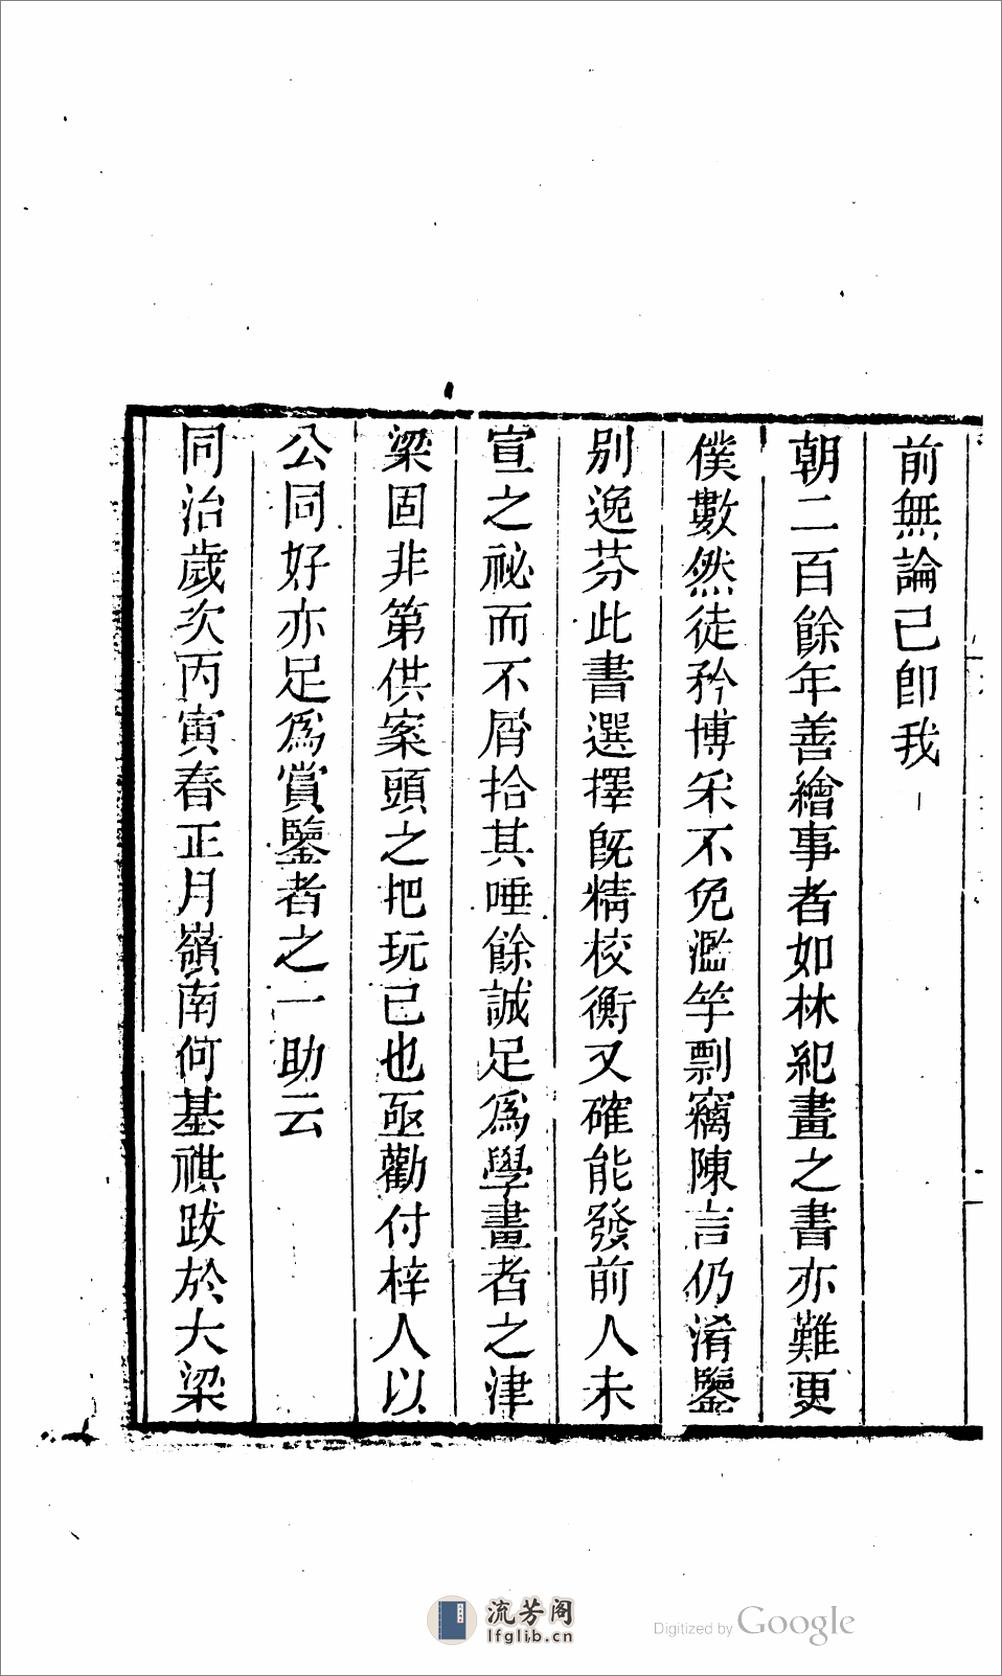 前無論已卽我
朝二百餘年善繪事者如林紀畫之書亦難更
僕數然徒矜博采不免濫竽剽竊陳言仍淆鑒
别逸芬此書選擇旣精校衡又確能發前人未
宣之祕而不屑拾其唾餘誠足爲學畫者之津
梁固非第供案頭之把玩已也亟勸付梓人以
公同好亦足爲賞鑒者之一助云
同治歲次丙寅春正月嶺南何基祺跋於大梁
流芳阁
lfglib.cn
Digitized by Google